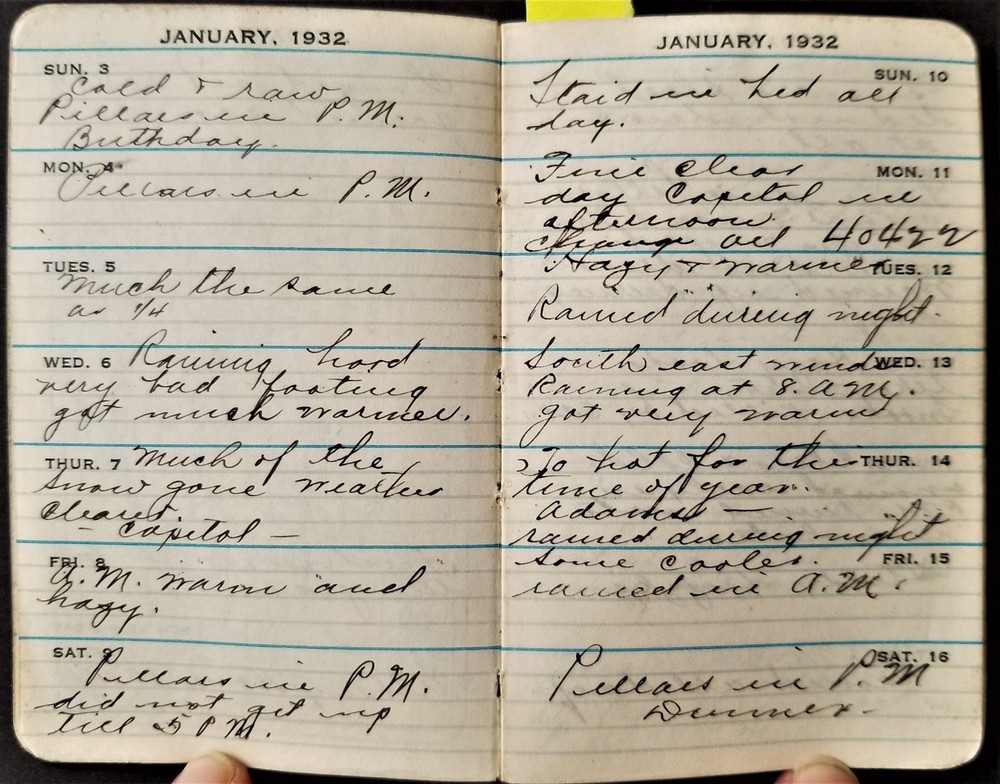 JANUARY, 1932
SUN. 3
Cold & raw
Pillars in P.M.
Birthday.
MON. 4
Pillars in P.M.
TUES. 5
Much the same
as 1/4
WED. 6 Raining hard
very bad footing
got much warmer.
THUR. 7 Much of the
snow gone weather
cleared
- Capitol -
FRI. 8
A.M. warm and
hazy.
SAT. 9
Pillars in P.M.
did not get up
till 5 P.M.
JANUARY, 1932
SUN. 10
Staid in bed all
day.
MON. 11
Fine clear
day Capitol in
afternoon.
Change oil 40422
TUES. 12
Hazy & warmer
Rained during night.
WED. 13
South east wind
Raining at 8. A.M.
got very warm
THUR. 14
To hot for this
time of year.
Adams —
rained during night
FRI. 15
Some cooler.
rained in A.M.
SAT. 16
Pillars in P.M
Dinner.